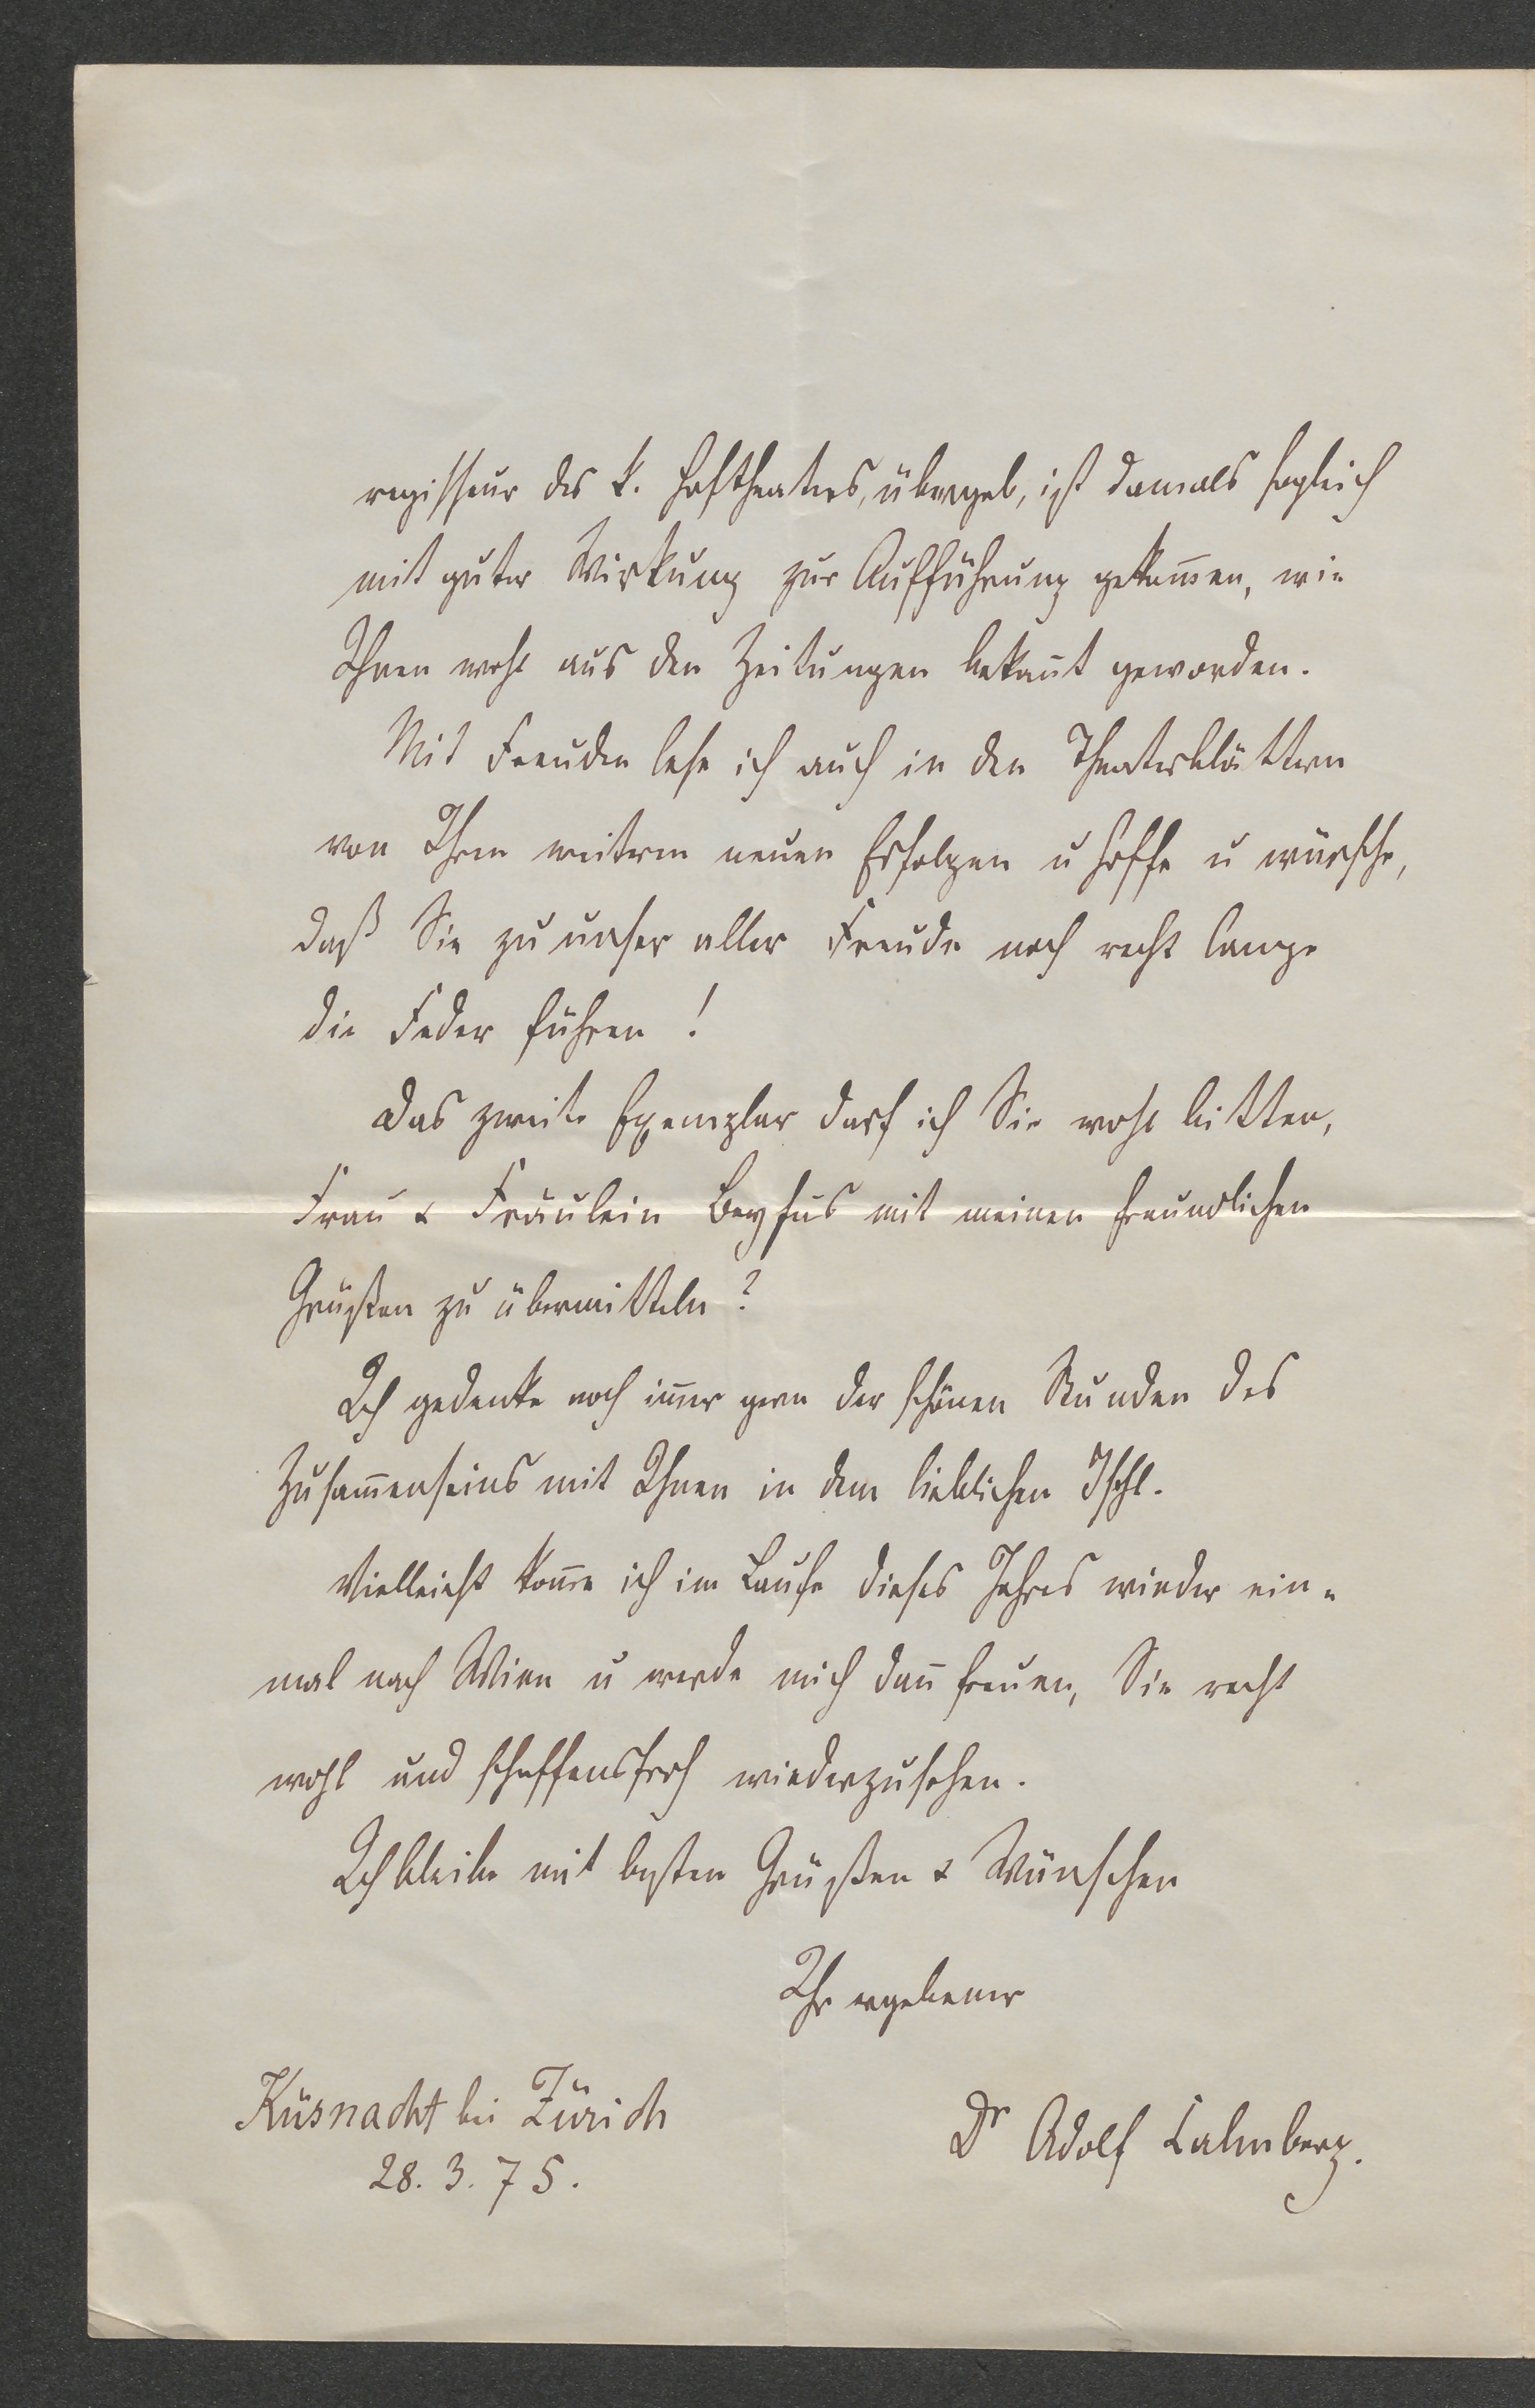 regisseur des k. Hoftheaters, übergab, ist damals sogleich
mit guter Wirkung zur Aufführung gekom̅en, wie
Ihnen wohl aus den Zeitungen bekan̅t geworden.
Mit Freuden lese ich auch in den Theaterblättern
von Ihren weiteren neuen Erfolgen u hoffe u wünsche,
daß Sie zu unser aller Freude noch recht lange
die Feder führen!
Das zweite Exemplar darf ich Sie wohl bitten,
Frau & Fräulein Beyfus mit meinen freundlichen
Grüßen zu übermitteln?
Ich gedenke noch im̅er gern der schönen Stunden des
Zusam̅enseins mit Ihnen in dem lieblichen Ischl.
Vielleicht kom̅e ich im Laufe dieses Jahres wieder ein-
mal nach Wien u werde mich dan̅ freuen, Sie recht
wohl und schaffensfroh wiederzusehen.
Ich bleibe mit besten Grüßen & Wünschen
Ihr ergebener
Küsnacht bei Zürich
Dr Adolf Calmberg.
28. 3. 75.